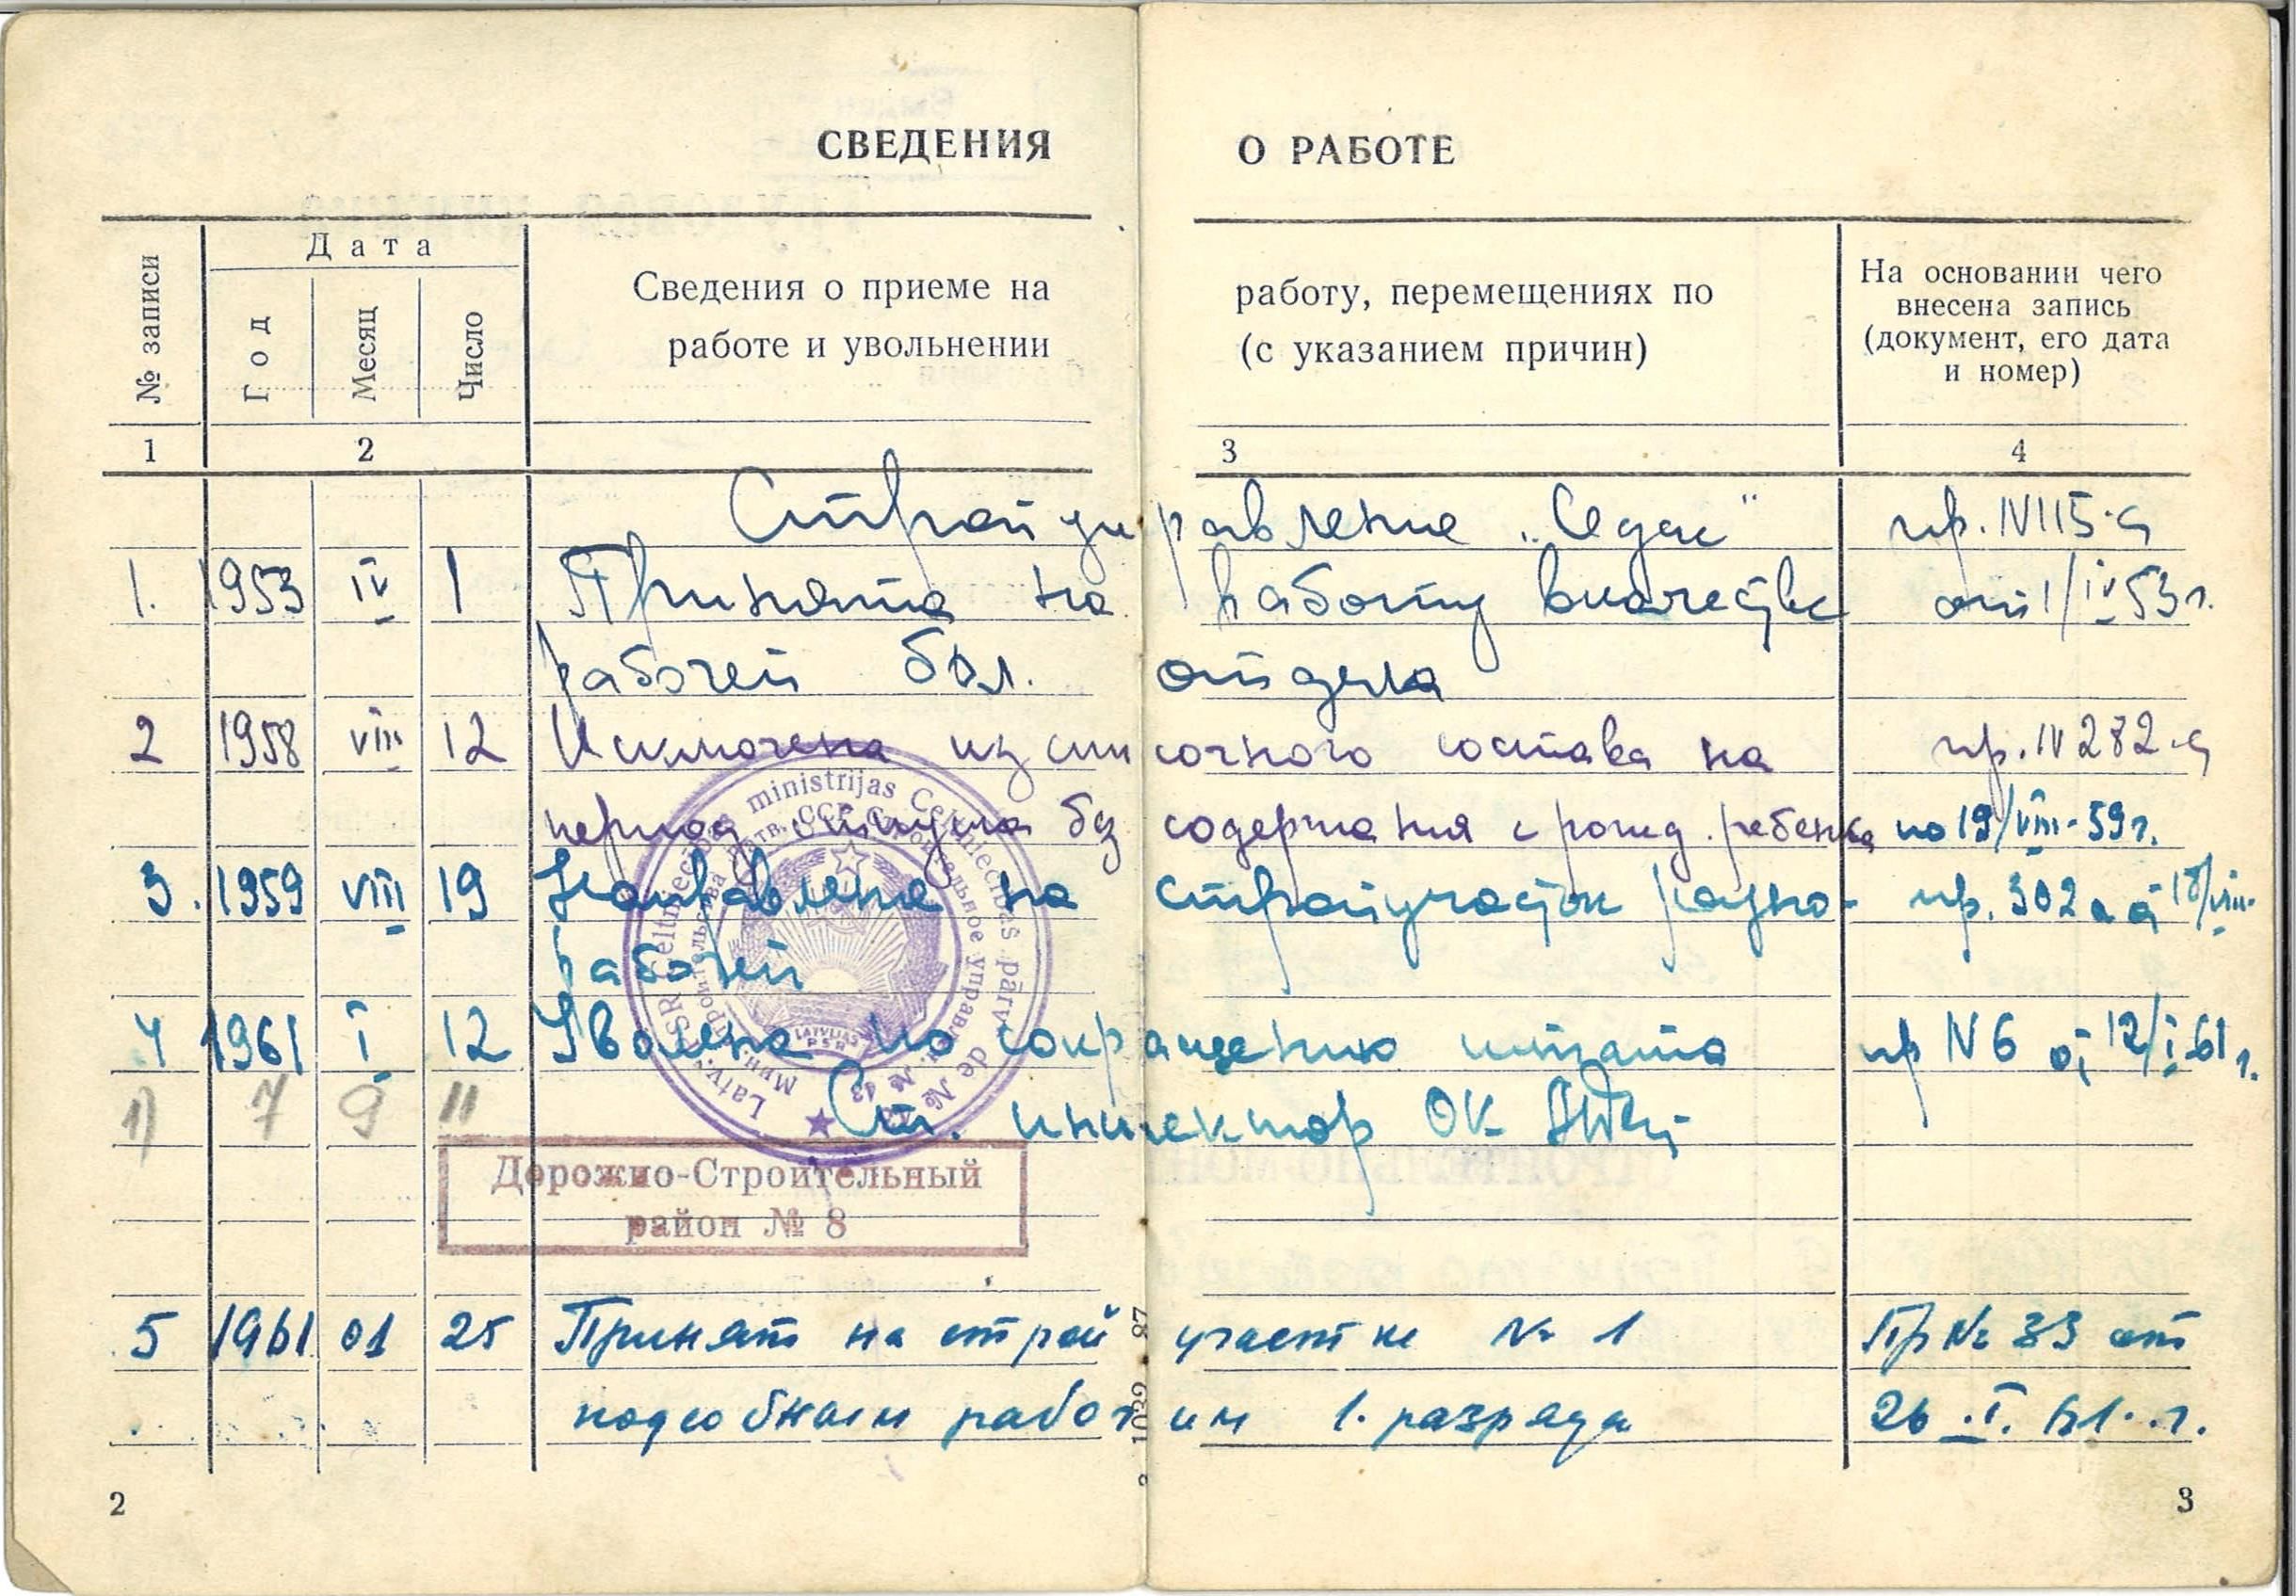 СВЕДЕНИЯ О РАБОТЕ
№ записи
Дата
Год
Месяц
Число
Сведения о приеме на работу, перемещениях по
работе и увольнении (с указанием причин)
На основании чего
внесена запись
(документ, его дата
и номер)
1 2 3 4
Стройуправление „Седас" пр. №115-а
1. 1953 IV 1 Принята на работу вкачестве от 1/IV 53 г.
рабочей отдела
2 1958 VIII 12 Исключена из списочного состава на пр. №282-а
период отпуска без содержания с рожд. ребенка по 19/VIII-59 г.
3. 1959 VIII 19 Направлена на стройучасток разно- пр. 302 а от 18/VIII-
рабочей
4 1961 I 12 Уволена по сокращению штата пр N 6 от 12/I-61 г.
1) 7 9 11
Ст. инспектор ОК
Latv. PSR Celtniecības ministrijas Celtniecības pārvalde №
Мин. Строительства Латв. ССР Строительное управлен. № 13
LATVIJAS
PSR
Дорожно-Строительный
район № 8
5 1961 01 25 Принят на строй участке № 1 Пр № 33 от
подсобным рабочим 1. разряда 26.I.61.г.
2 1032 87
2 3